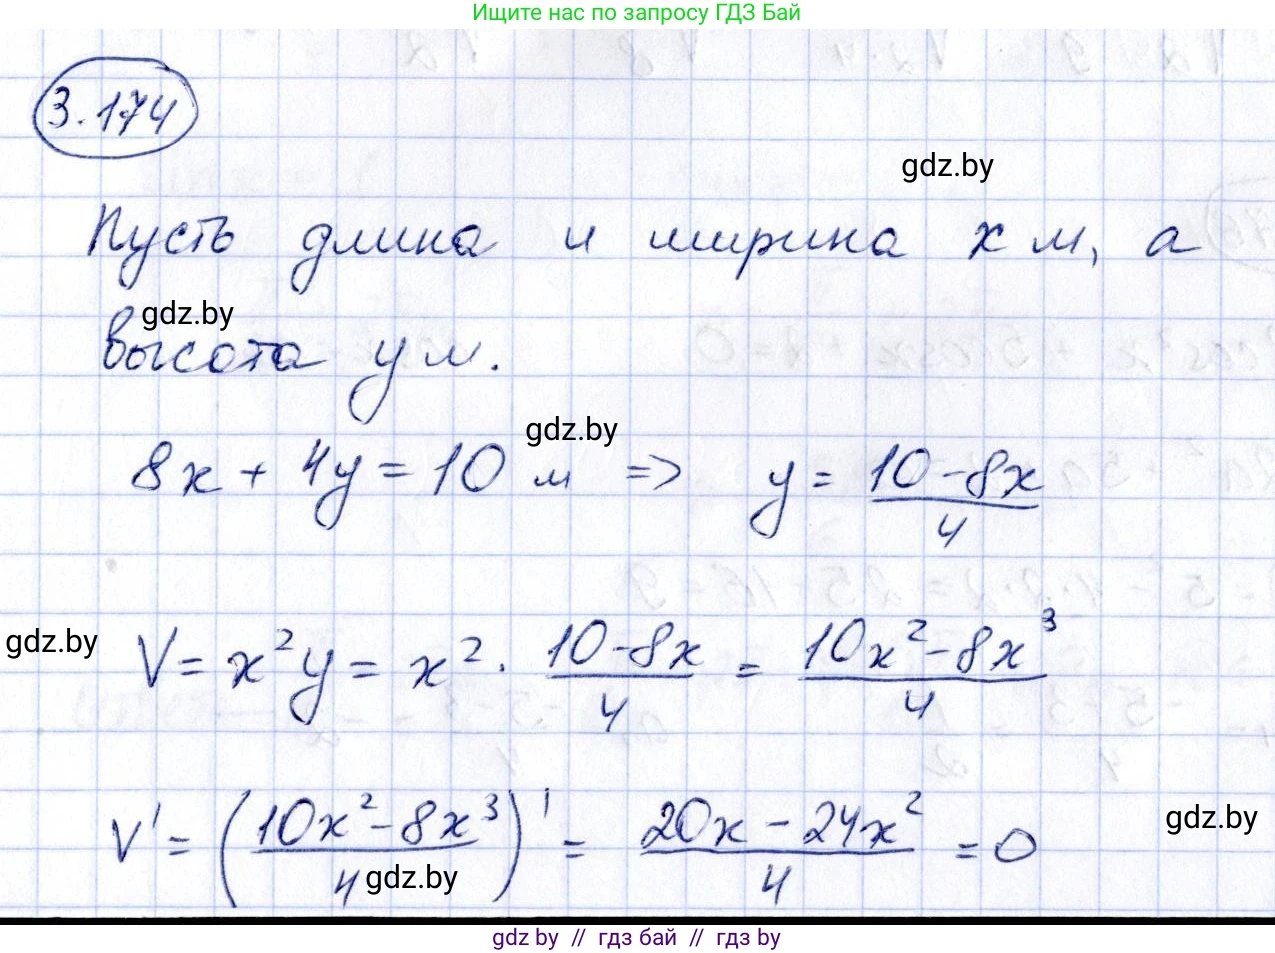 Ищите нас по запросу ГДЗ Бай
3.174
gdz.by
Пусть длина и ширина x м, а
gdz.by
высота y м.
gdz.by
8x + 4y = 10 м => y = (10-8x)/4
gdz.by
V = x²y = x² · (10-8x)/4 = (10x²-8x³)/4
gdz.by
V' = ((10x²-8x³)/4)' = (20x - 24x²)/4 = 0
gdz.by
gdz by // гдз бай // гдз by